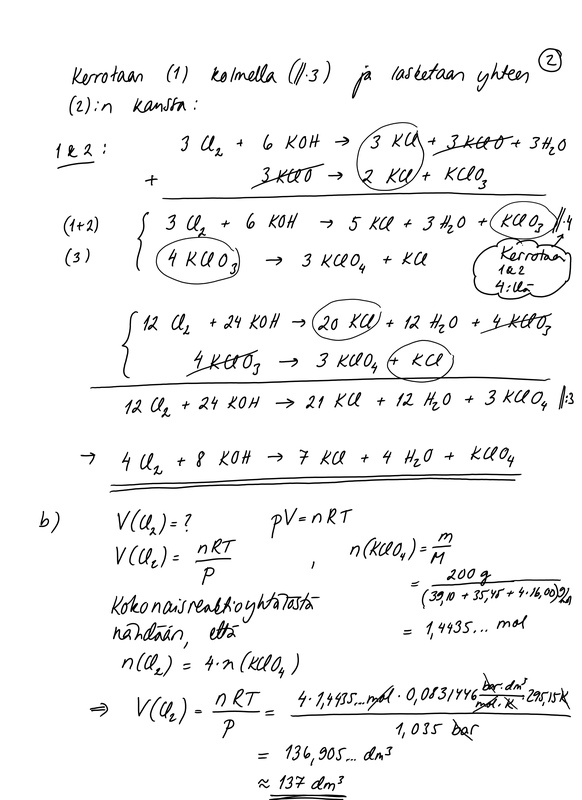 ②
Kerrotaan (1) kolmella (//·3) ja lasketaan yhteen
(2):n kanssa:
1&2: 3 Cl₂ + 6 KOH → 3 KCl + 3 KClO + 3H₂O
+ 3 KClO → 2 KCl + KClO₃
(1+2) 3 Cl₂ + 6 KOH → 5 KCl + 3 H₂O + KClO₃ //·4
(3) 4 KClO₃ → 3 KClO₄ + KCl
Kerrotaan
1&2
4:llä
12 Cl₂ + 24 KOH → 20 KCl + 12 H₂O + 4 KClO₃
4 KClO₃ → 3 KClO₄ + KCl
12 Cl₂ + 24 KOH → 21 KCl + 12 H₂O + 3 KClO₄ //:3
→ 4 Cl₂ + 8 KOH → 7 KCl + 4 H₂O + KClO₄
b) V(Cl₂) = ? pV = nRT
V(Cl₂) = nRT/p , n(KClO₄) = m/M
= 200 g/(39,10 + 35,45 + 4·16,00) g/mol
Kokonaisreaktioyhtälöstä
nähdään, että = 1,4435... mol
n(Cl₂) = 4·n(KClO₄)
⇒ V(Cl₂) = nRT/p = 4·1,4435...mol · 0,0831446 bar·dm³/mol·K · 295,15K / 1,035 bar
= 136,905... dm³
≈ 137 dm³